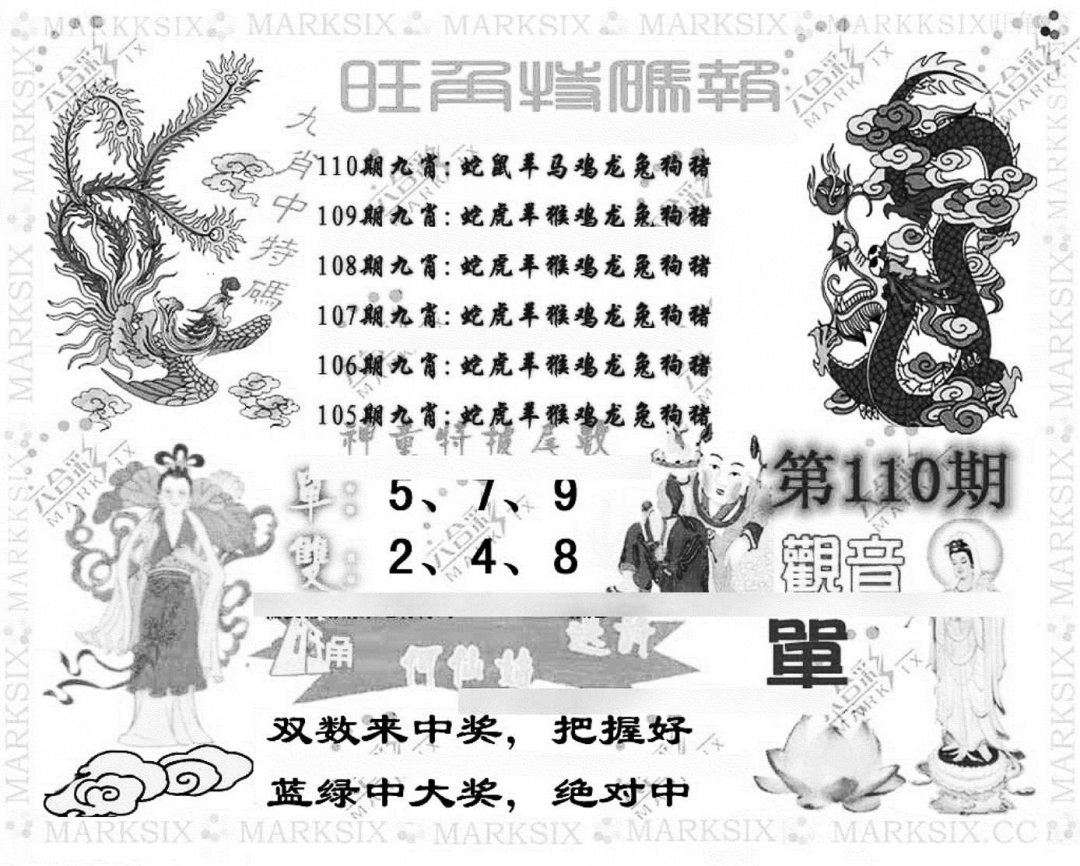 MARKKSIX MARKSIX MARKSIX MARKSIX MARKKSIX
旺角特碼報
九肖中特碼
110期九肖:蛇鼠羊马鸡龙兔狗猪
109期九肖:蛇虎羊猴鸡龙兔狗猪
108期九肖:蛇虎羊猴鸡龙兔狗猪
107期九肖:蛇虎羊猴鸡龙兔狗猪
106期九肖:蛇虎羊猴鸡龙兔狗猪
105期九肖:蛇虎羊猴鸡龙兔狗猪
神童特披尾数
第110期
單: 5、7、9
雙: 2、4、8
觀音
單
何仙姑
双数来中奖，把握好
蓝绿中大奖，绝对中
MARKSIX MARKSIX MARKSIX MARKSIX MARKSIX.CC